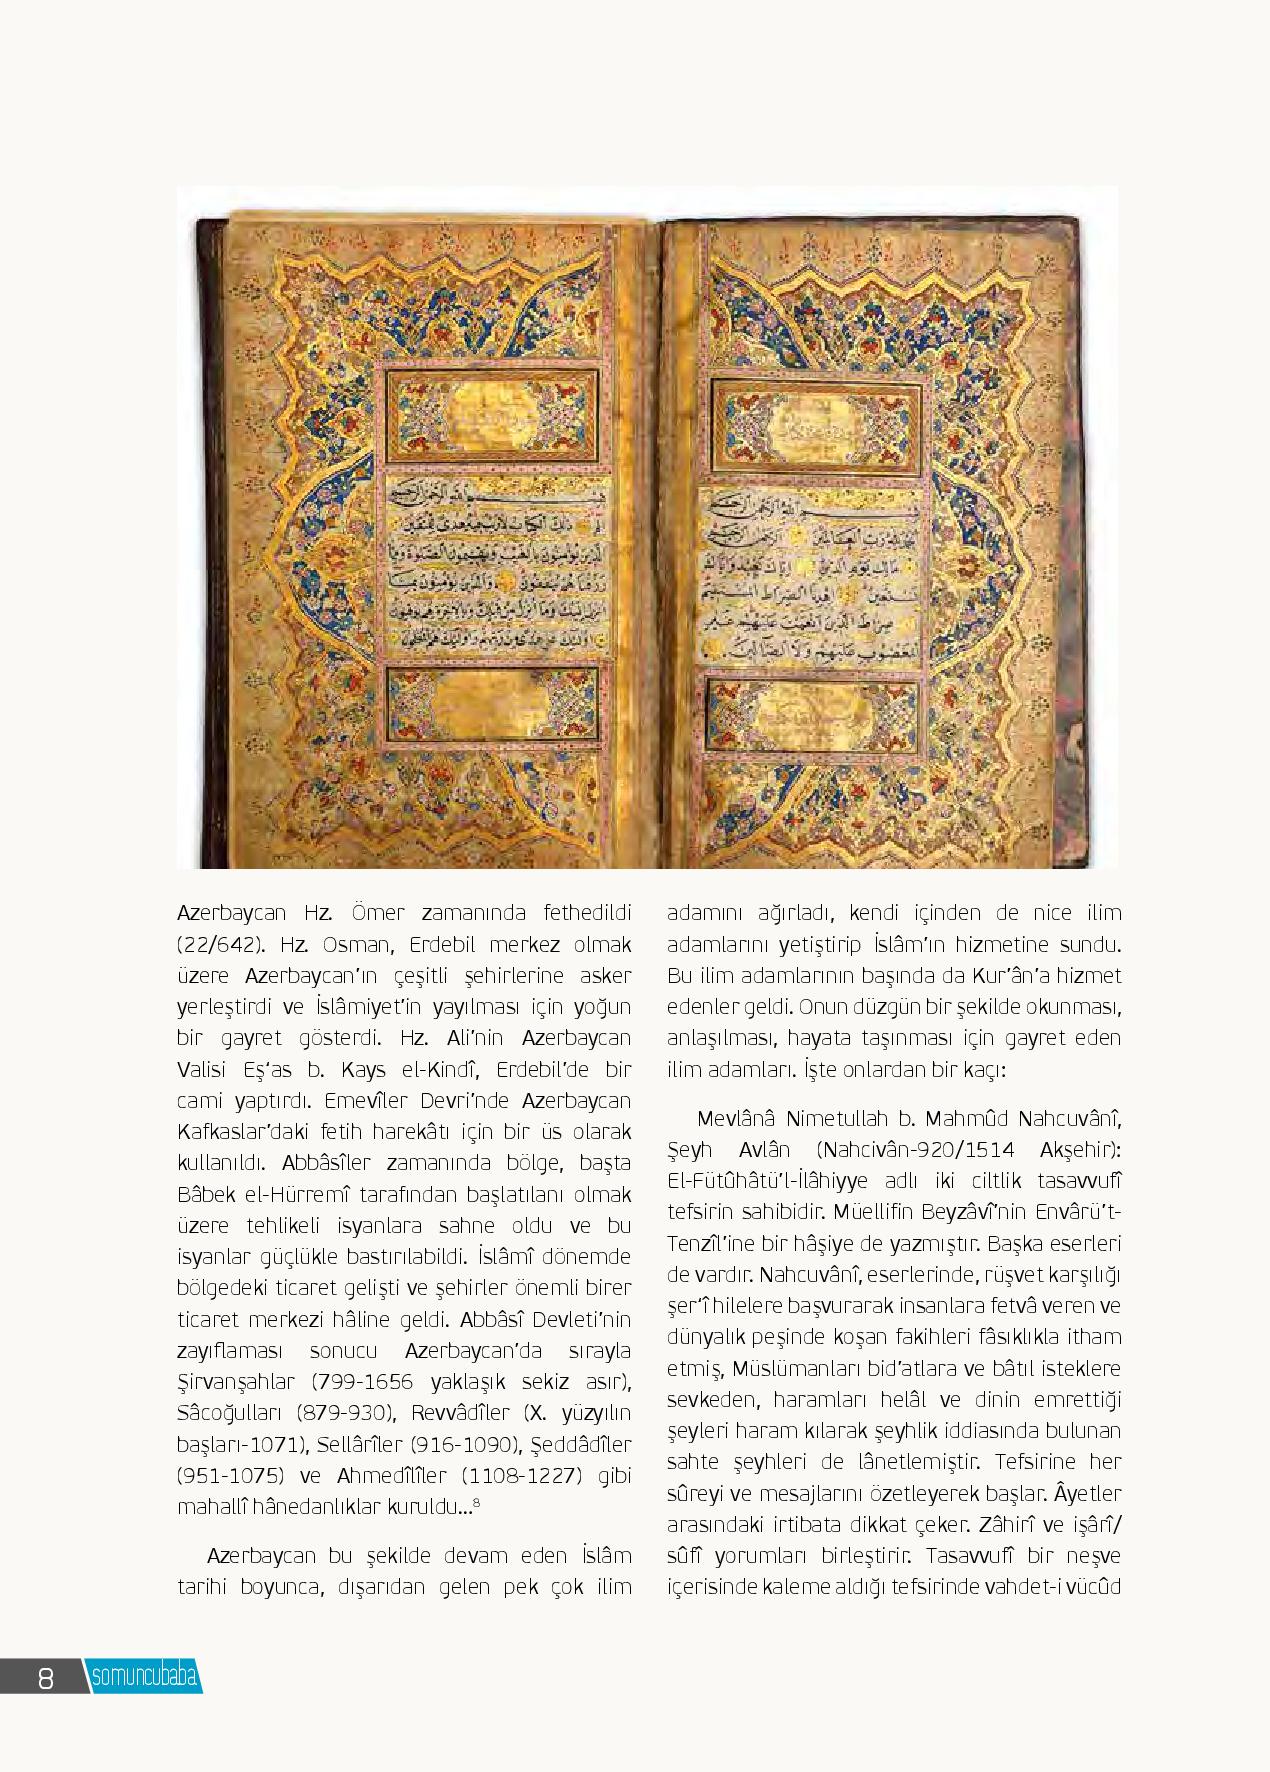 بسم الله الرحمن الرحيم
الحمد لله رب العالمين الرحمن الرحيم
مالك يوم الدين اياك نعبد واياك
نستعين اهدنا الصراط المستقيم
صراط الذين انعمت عليهم غير
المغضوب عليهم ولا الضالين
بسم الله الرحمن الرحيم
الم ذلك الكتاب لا ريب فيه هدى للمتقين
الذين يؤمنون بالغيب ويقيمون الصلوة ومما
رزقناهم ينفقون والذين يؤمنون بما
انزل اليك وما انزل من قبلك وبالاخرة هم يوقنون
اولئك على هدى من ربهم واولئك هم المفلحون
Azerbaycan Hz. Ömer zamanında fethedildi
(22/642). Hz. Osman, Erdebil merkez olmak
üzere Azerbaycan’ın çeşitli şehirlerine asker
yerleştirdi ve İslâmiyet’in yayılması için yoğun
bir gayret gösterdi. Hz. Ali’nin Azerbaycan
Valisi Eş‘as b. Kays el-Kindî, Erdebil’de bir
cami yaptırdı. Emevîler Devri’nde Azerbaycan
Kafkaslar’daki fetih harekâtı için bir üs olarak
kullanıldı. Abbâsîler zamanında bölge, başta
Bâbek el-Hürremî tarafından başlatılanı olmak
üzere tehlikeli isyanlara sahne oldu ve bu
isyanlar güçlükle bastırılabildi. İslâmî dönemde
bölgedeki ticaret gelişti ve şehirler önemli birer
ticaret merkezi hâline geldi. Abbâsî Devleti’nin
zayıflaması sonucu Azerbaycan’da sırayla
Şirvanşahlar (799-1656 yaklaşık sekiz asır),
Sâcoğulları (879-930), Revvâdîler (X. yüzyılın
başları-1071), Sellârîler (916-1090), Şeddâdîler
(951-1075) ve Ahmedîlîler (1108-1227) gibi
mahallî hânedanlıklar kuruldu...⁸
Azerbaycan bu şekilde devam eden İslâm
tarihi boyunca, dışarıdan gelen pek çok ilim
adamını ağırladı, kendi içinden de nice ilim
adamlarını yetiştirip İslâm’ın hizmetine sundu.
Bu ilim adamlarının başında da Kur’ân’a hizmet
edenler geldi. Onun düzgün bir şekilde okunması,
anlaşılması, hayata taşınması için gayret eden
ilim adamları. İşte onlardan bir kaçı:
Mevlânâ Nimetullah b. Mahmûd Nahcuvânî,
Şeyh Avlân (Nahcivân-920/1514 Akşehir):
El-Fütûhâtü’l-İlâhiyye adlı iki ciltlik tasavvufî
tefsirin sahibidir. Müellifin Beyzâvî’nin Envârü’t-
Tenzîl’ine bir hâşiye de yazmıştır. Başka eserleri
de vardır. Nahcuvânî, eserlerinde, rüşvet karşılığı
şer‘î hilelere başvurarak insanlara fetvâ veren ve
dünyalık peşinde koşan fakihleri fâsıklıkla itham
etmiş, Müslümanları bid’atlara ve bâtıl isteklere
sevkeden, haramları helâl ve dinin emrettiği
şeyleri haram kılarak şeyhlik iddiasında bulunan
sahte şeyhleri de lânetlemiştir. Tefsirine her
sûreyi ve mesajlarını özetleyerek başlar. Âyetler
arasındaki irtibata dikkat çeker. Zâhirî ve işârî/
sûfî yorumları birleştirir. Tasavvufî bir neşve
içerisinde kaleme aldığı tefsirinde vahdet-i vücûd
8
somuncubaba